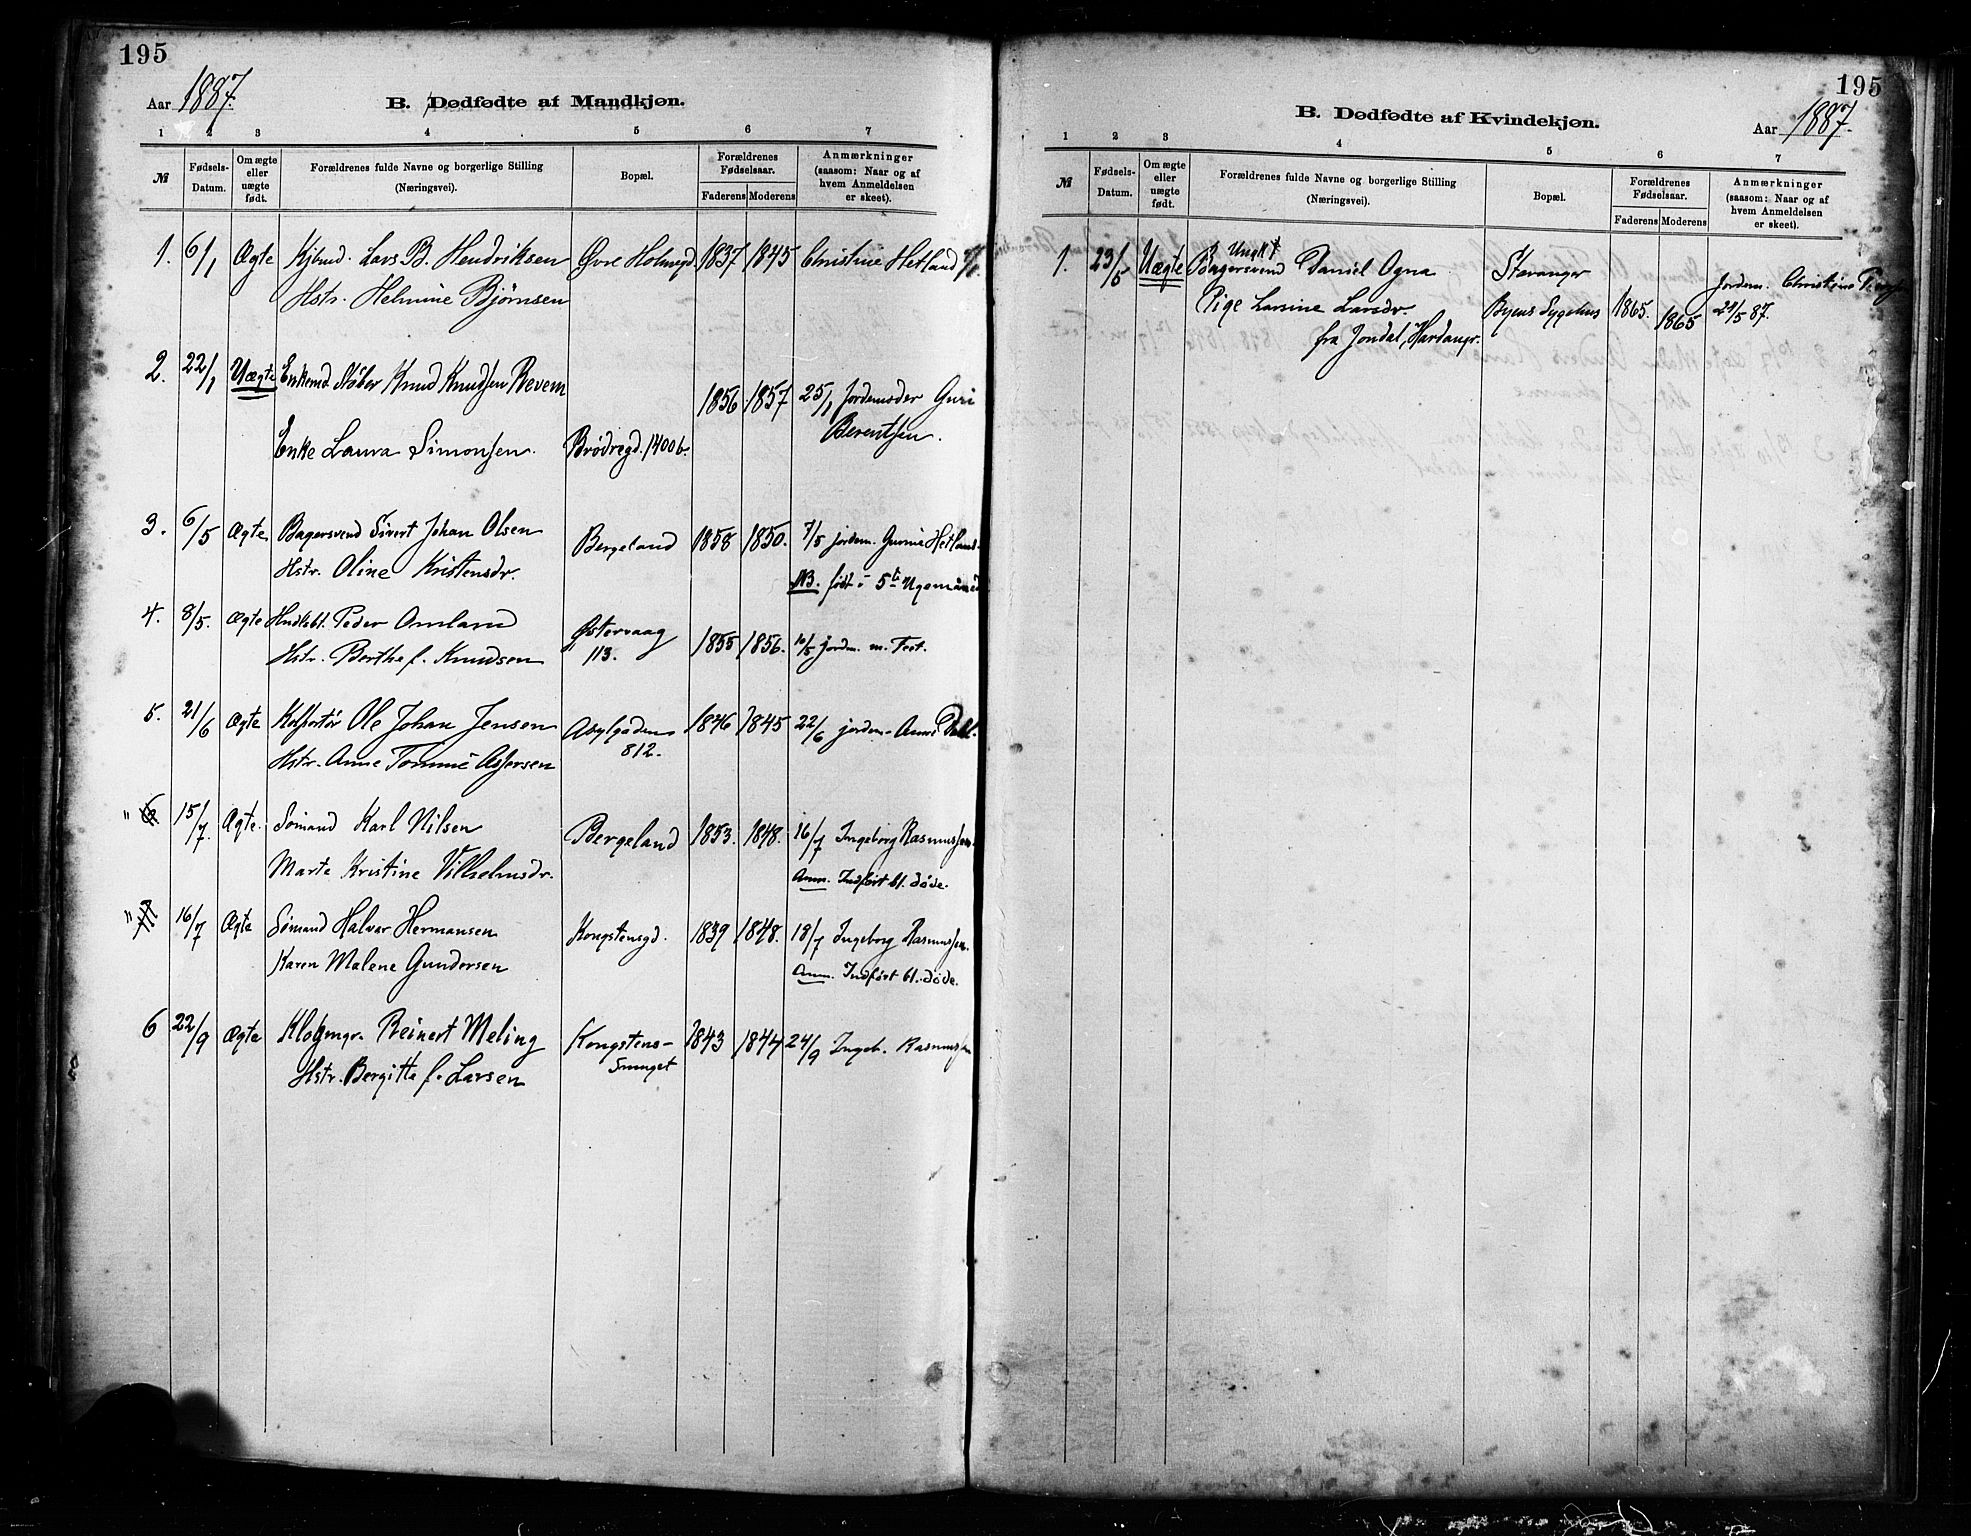 195
Aar 1887.
B. Dødfødte af Mandkjøn.
1 2 3 4 5 6 7
№ Fødsels-Datum. Om ægte eller uægte født. Forældrenes fulde Navne og borgerlige Stilling (Næringsvei). Bopæl. Forældrenes Fødselsaar. Faderens Moderens Anmærkninger (saasom: Naar og af hvem Anmeldelsen er skeet).
1. 6/1 Ægte Kjbmd. Lars B. Hendriksen Øvre Holmegd. 1837 1845 Christine Hetland
Hstr. Helmine Bjørnsen
2. 22/1 Uægte Enkemd Støber Knud Knudsen Revem
1856 1857 25/1 Jordemoder Guri
Berentsen.
Enke Laura Simonsen. Brødregd. 1400 b.
3. 6/5 Ægte Bagersvend Sivert Johan Olsen
Bergeland 1858 1850. 7/5 jordem. Gurine Hetland.
Hstr. Oline Kristensdr.
NB. født i 5te
4. 8/5. Ægte Peder Omland
Østervaag 113. 1855 1856. 10/5 jordm. m. Test.
Hstr. Berthe f. Knudsen
5. 21/6 Ægte Kolportør Ole Johan Jensen
Asylgaden 812. 1846 1845 22/6 jordem. Anne Dahl.
Hstr. Anne Tomine Assersen
" 6 15/7. Ægte. Sømand Karl Nilsen
Bergeland 1853. 1848. 16/7 Ingeborg Rasmussen.
Marte Kristine Vilhelmsdr.
Anm. Indført bl. døde.
" 7 16/7 Ægte Sømand Halvor Hermansen
Kongstensgd. 1839 1848. 18/7 Ingeborg Rasmussen.
Karen Malene Gundersen
Anm. Indført bl. døde.
6 22/9 Ægte Reinert Meling
Kongstens-Smuget 1843 1844 24/9 Ingeb. Rasmussen
Hstr. Bergitte f. Larsen
195
B. Dødfødte af Kvindekjøn.
Aar 1887.
1 2 3 4 5 6 7
№ Fødsels-Datum. Om ægte eller uægte født. Forældrenes fulde Navne og borgerlige Stilling (Næringsvei). Bopæl. Forældrenes Fødselsaar. Faderens Moderens Anmærkninger (saasom: Naar og af hvem Anmeldelsen er skeet).
1. 23/5 Uægte Ungk. Bagersvend Daniel Ogna Stavanger
Pige Larsdr. Byens Sygehus 1865. 1865 Jordem. Christine
24/5 87.
fra Jondal, Hardangr.